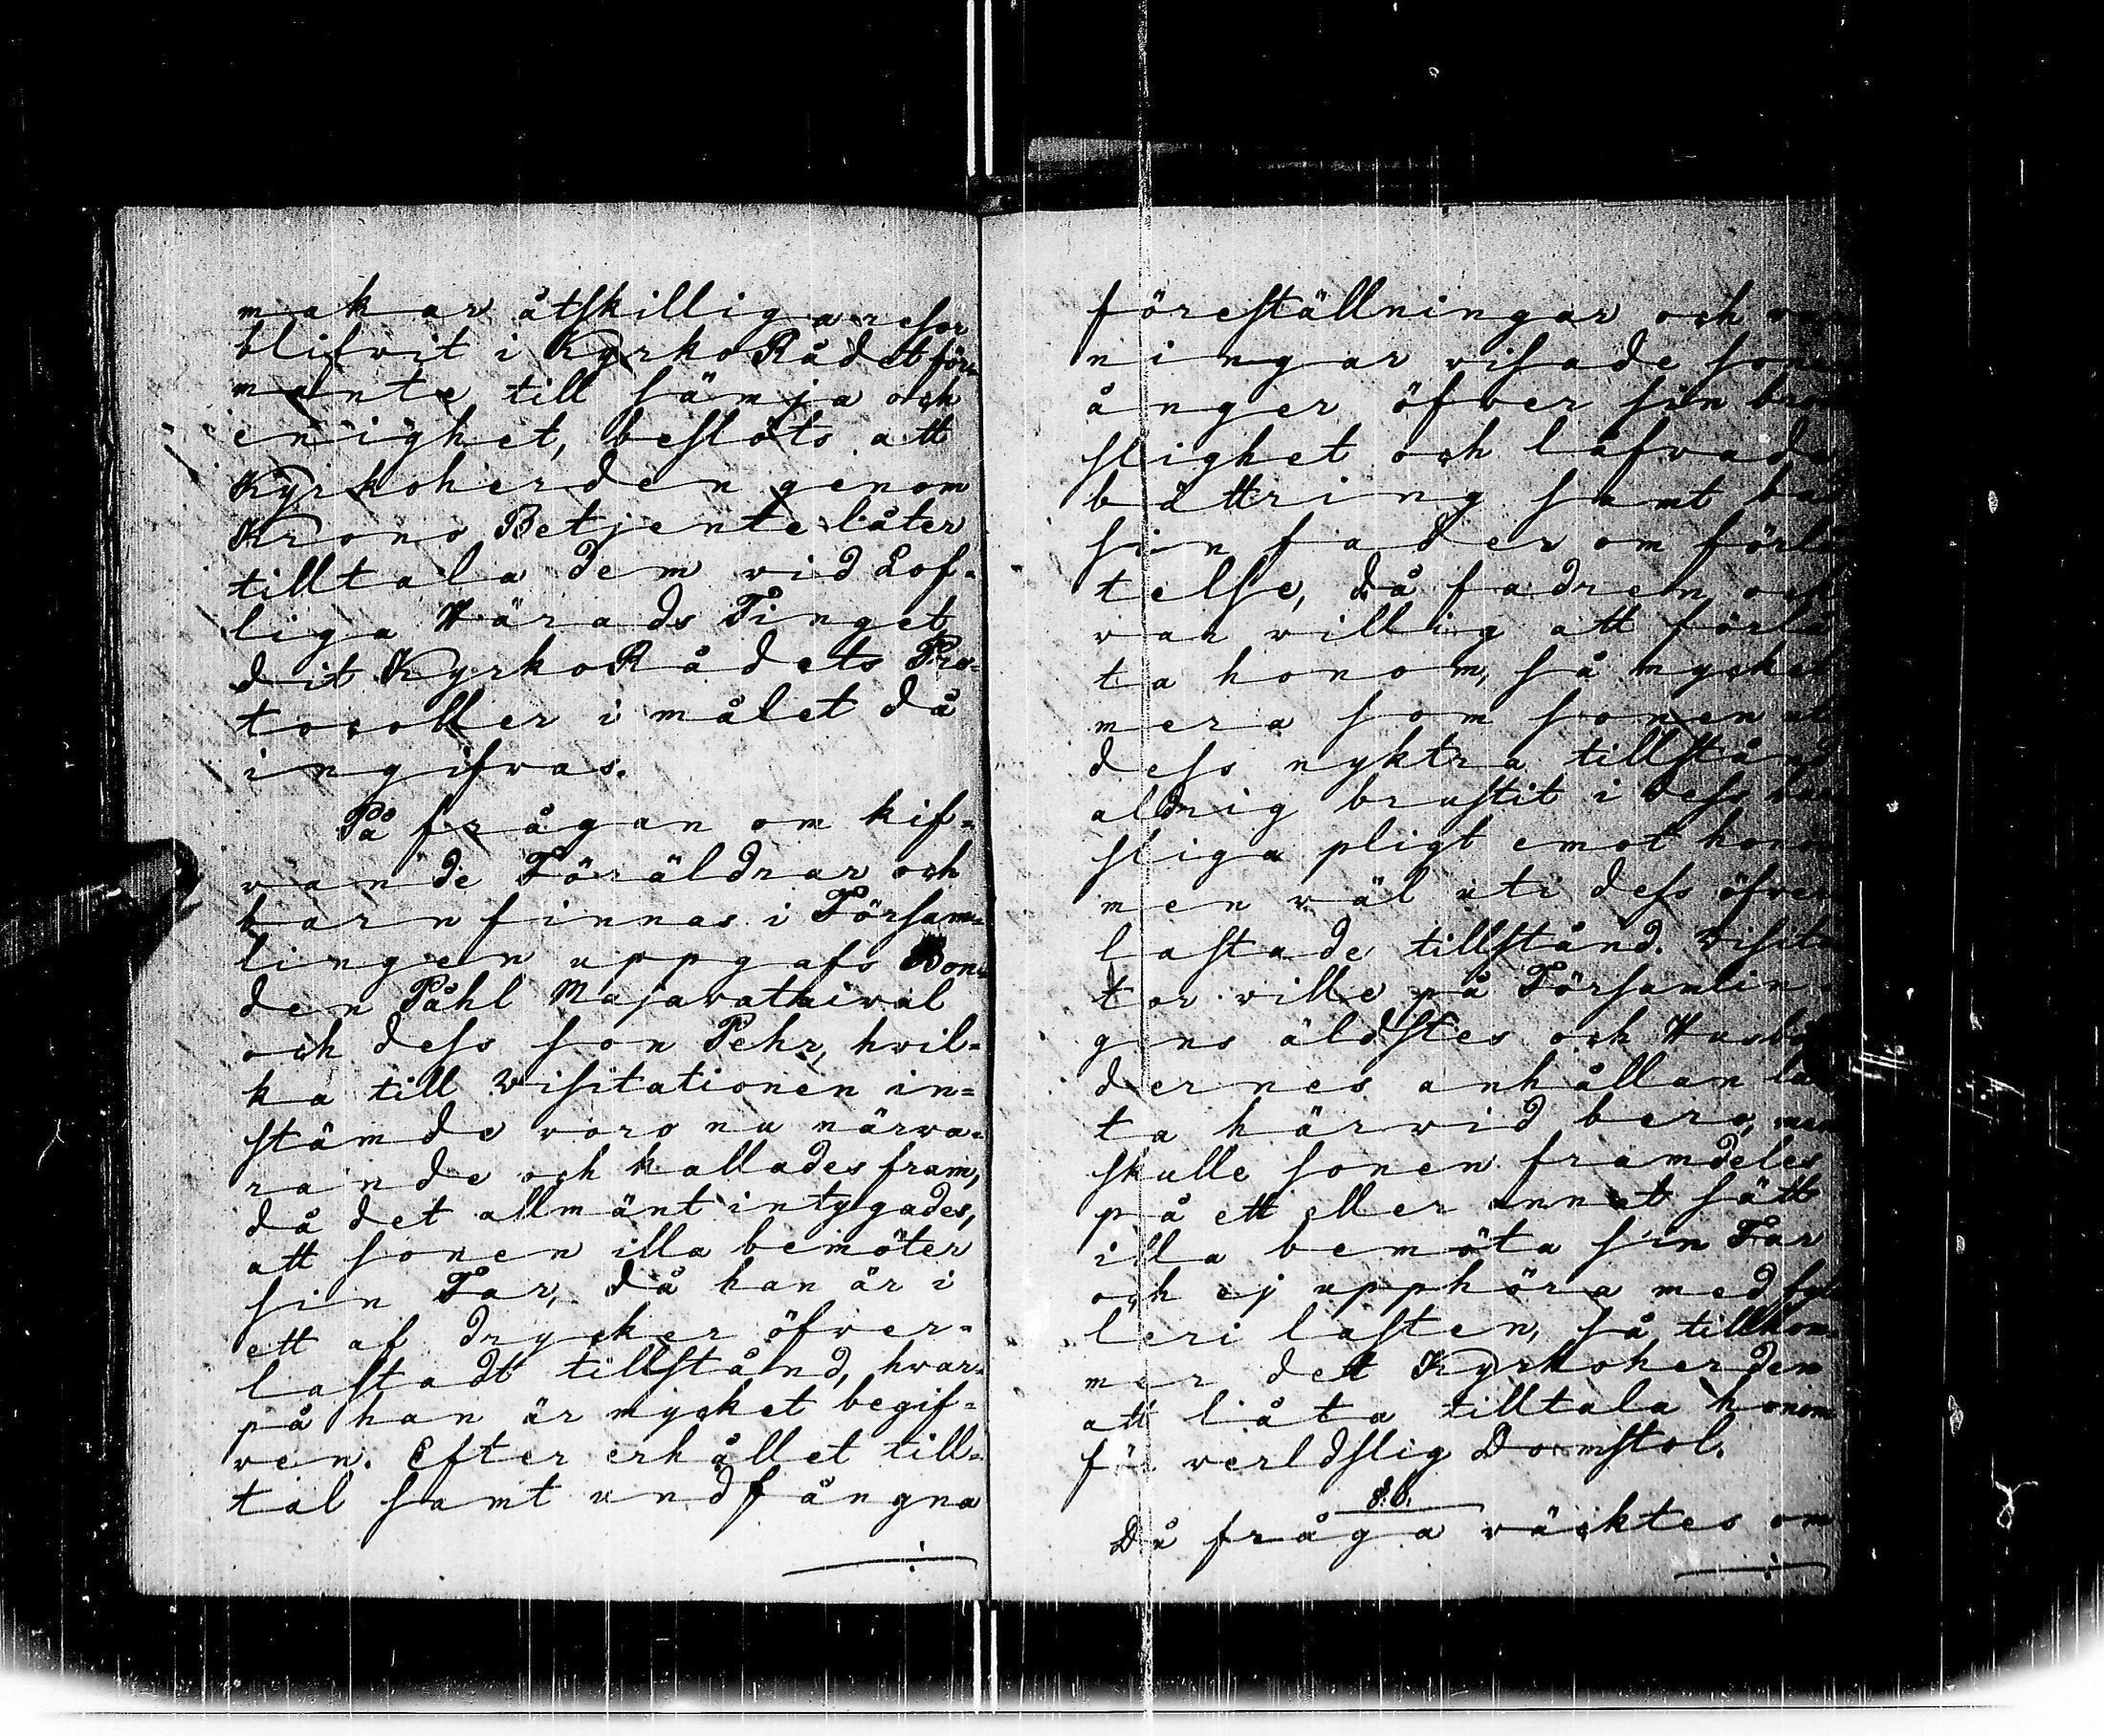 makar åtskilliga resor
blifvit i Kyrko Rådet för-
mante till sämja och
enighet, beslöts att
Kyrkoherden genom
Krono Betjente låter
tilltala dem vid Lof-
liga Härads Tinget
dit KyrkoRådets Pro-
tocoller i målet då
ingifvas.
På frågan om kif-
vande Föräldrar och
barn finnas i Försam-
lingen uppgafs Bon-
den Påhl Majavathival
och dess son Pehr, hvil-
ka till Visitationen in-
stämde voro nu närva-
rande och kallades fram,
då det allmänt intygades,
att sonen illa bemöter
sin Far, då han är i
ett af drycker öfver-
lastadt tillstånd, hvar-
på han är mycket begif-
ven. Efter erhållet till-
tal samt undfångna
föreställningar och var
ningar visade sonen
ånger öfver sin brot
slighet och låfvade
bättring samt bad
sin fader om förlå
telse, då fadren och
var villig att förlå
ta honom, så mycket
mera som sonen uti
dess nyktra tillstånd
aldrig brustit i dess
sliga pligt emot honom
men väl uti dess öfver
lastade tillstånd. Visita
tor ville på Församlin-
gens äldstes och Husbön
dernes anhållan lå
ta härvid bero, men
skulle sonen framdeles
på ett eller annat sätt
illa bemöta sin Far
och ej upphöra med fyl
leri lasten, så tillkom-
mer det Kyrkoherden
att låta tilltala honom
för verldslig Domstol.
8.6.
Då fråga väcktes om